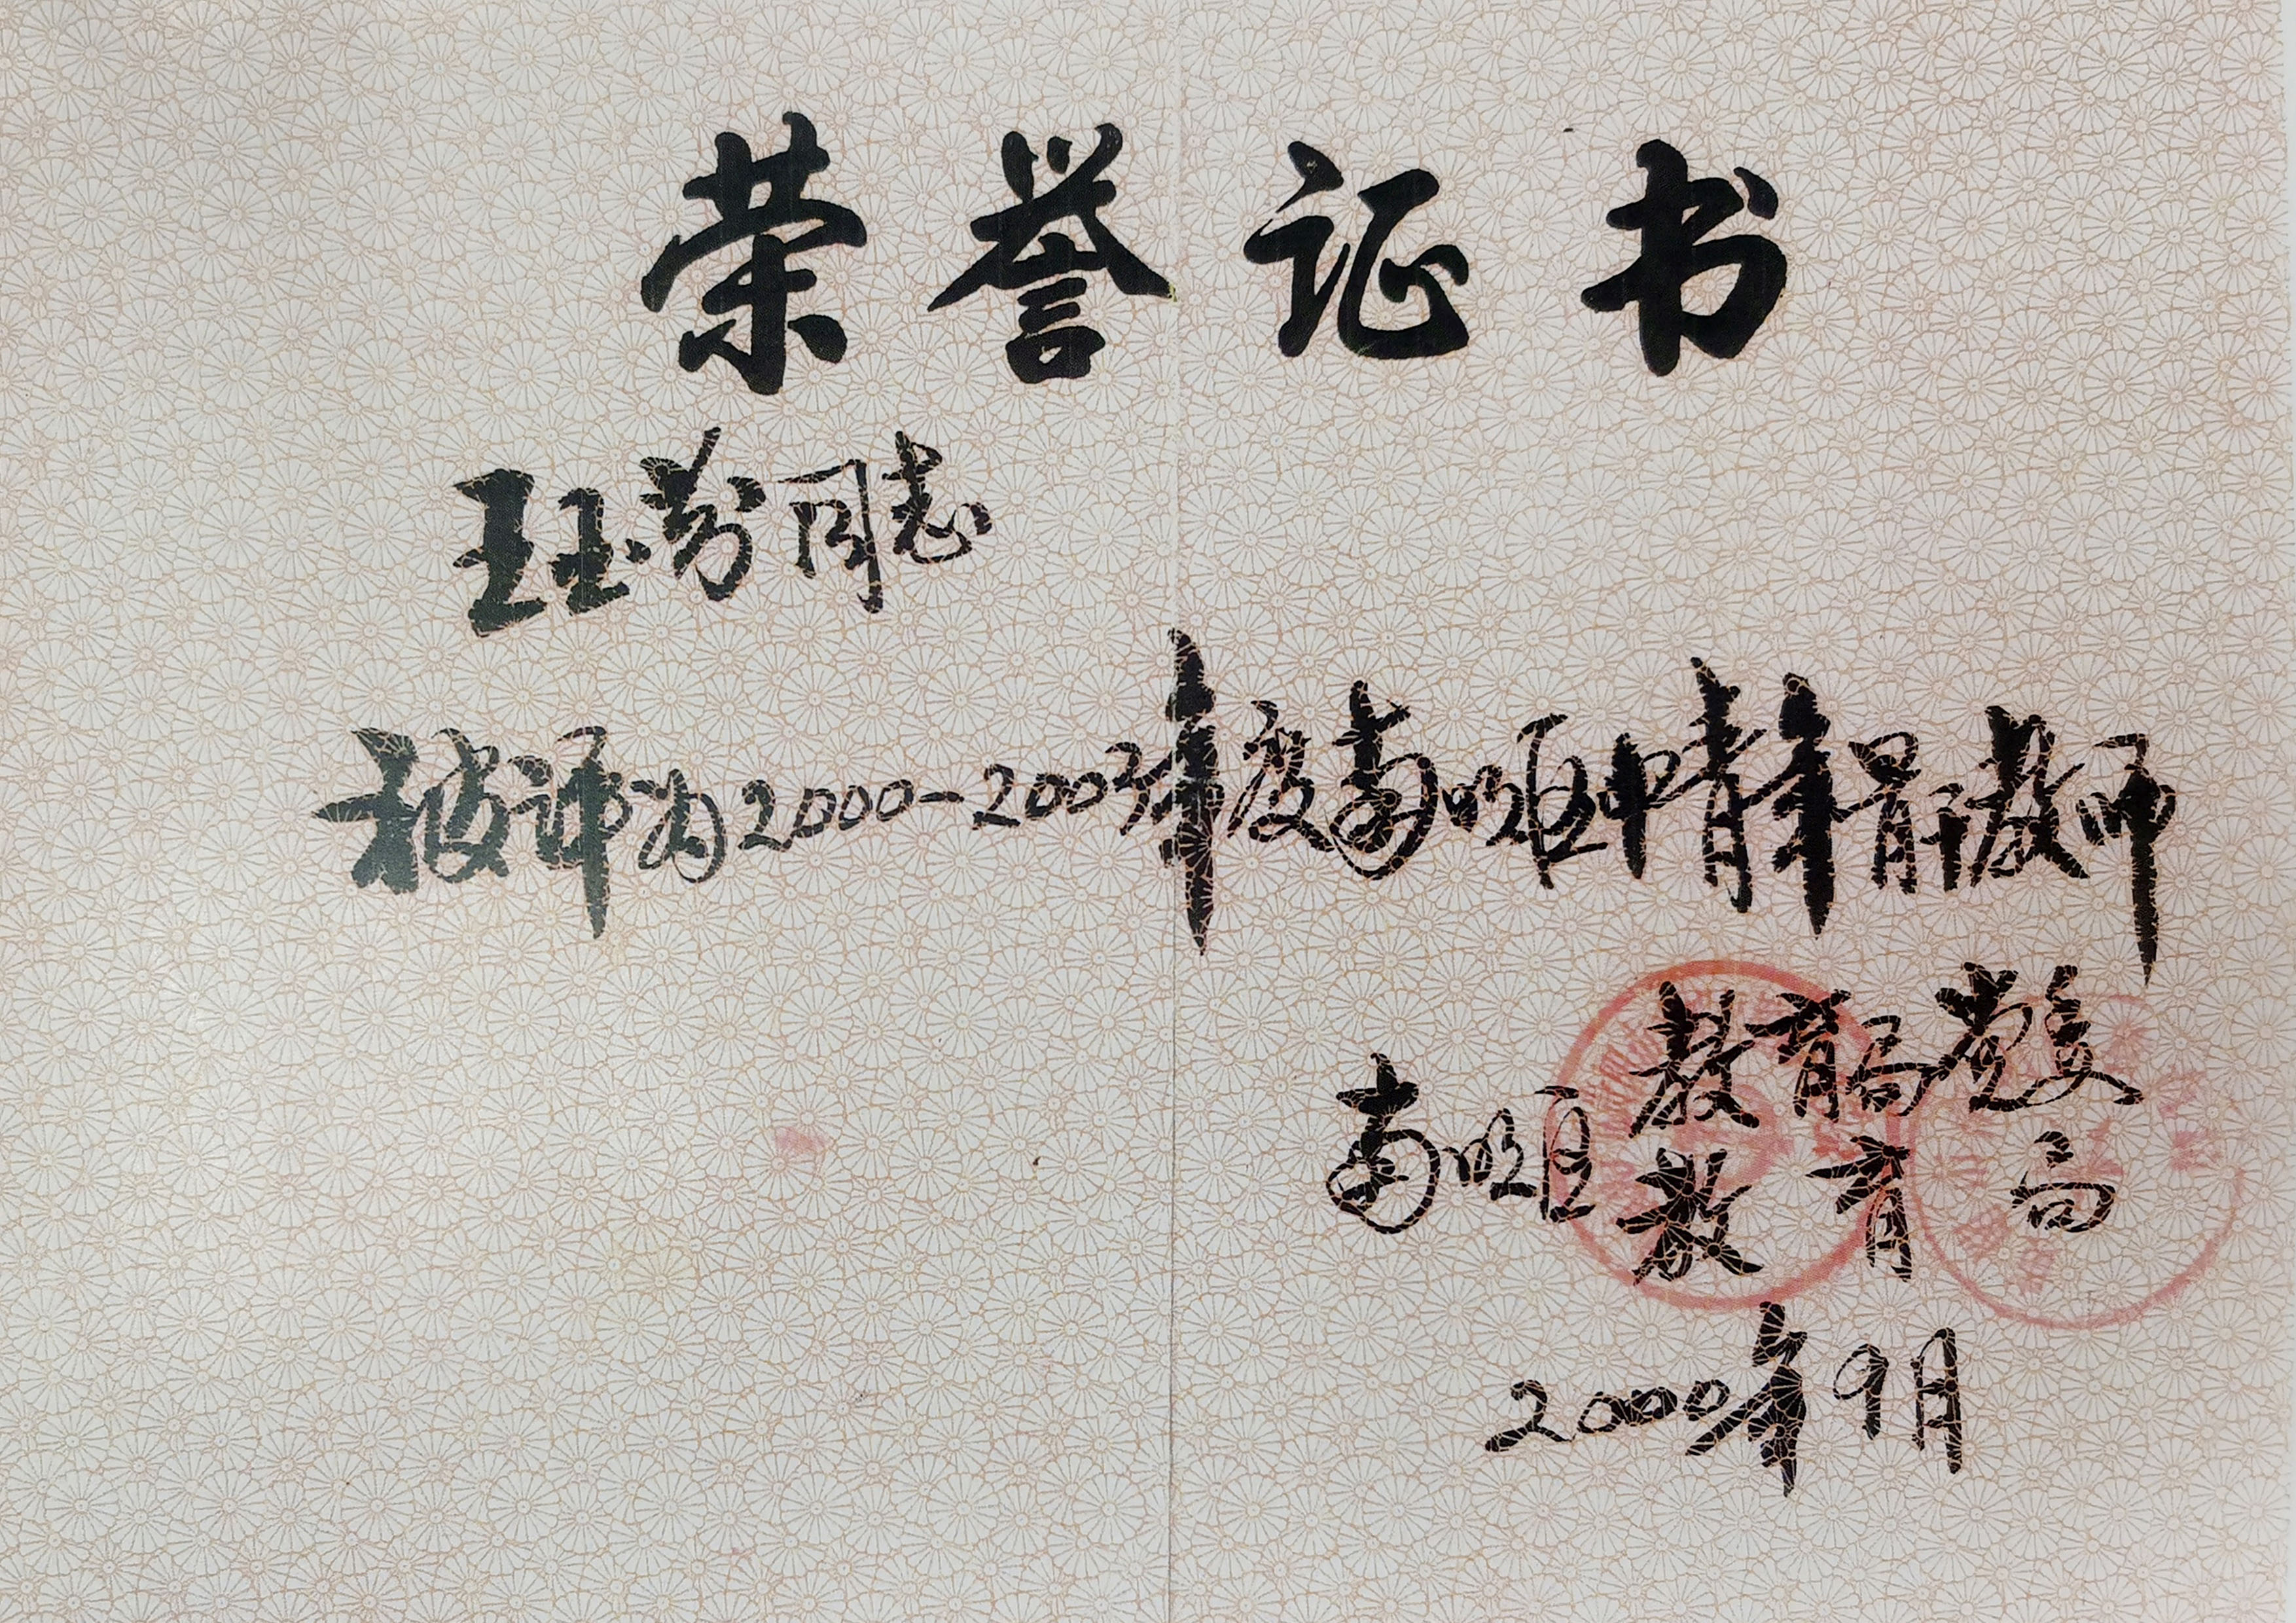 荣誉证书
王玉芬同志
被评为2000-2003年度南明区中青年骨干教师
教育局党委
南明区
教育局
2000年9月